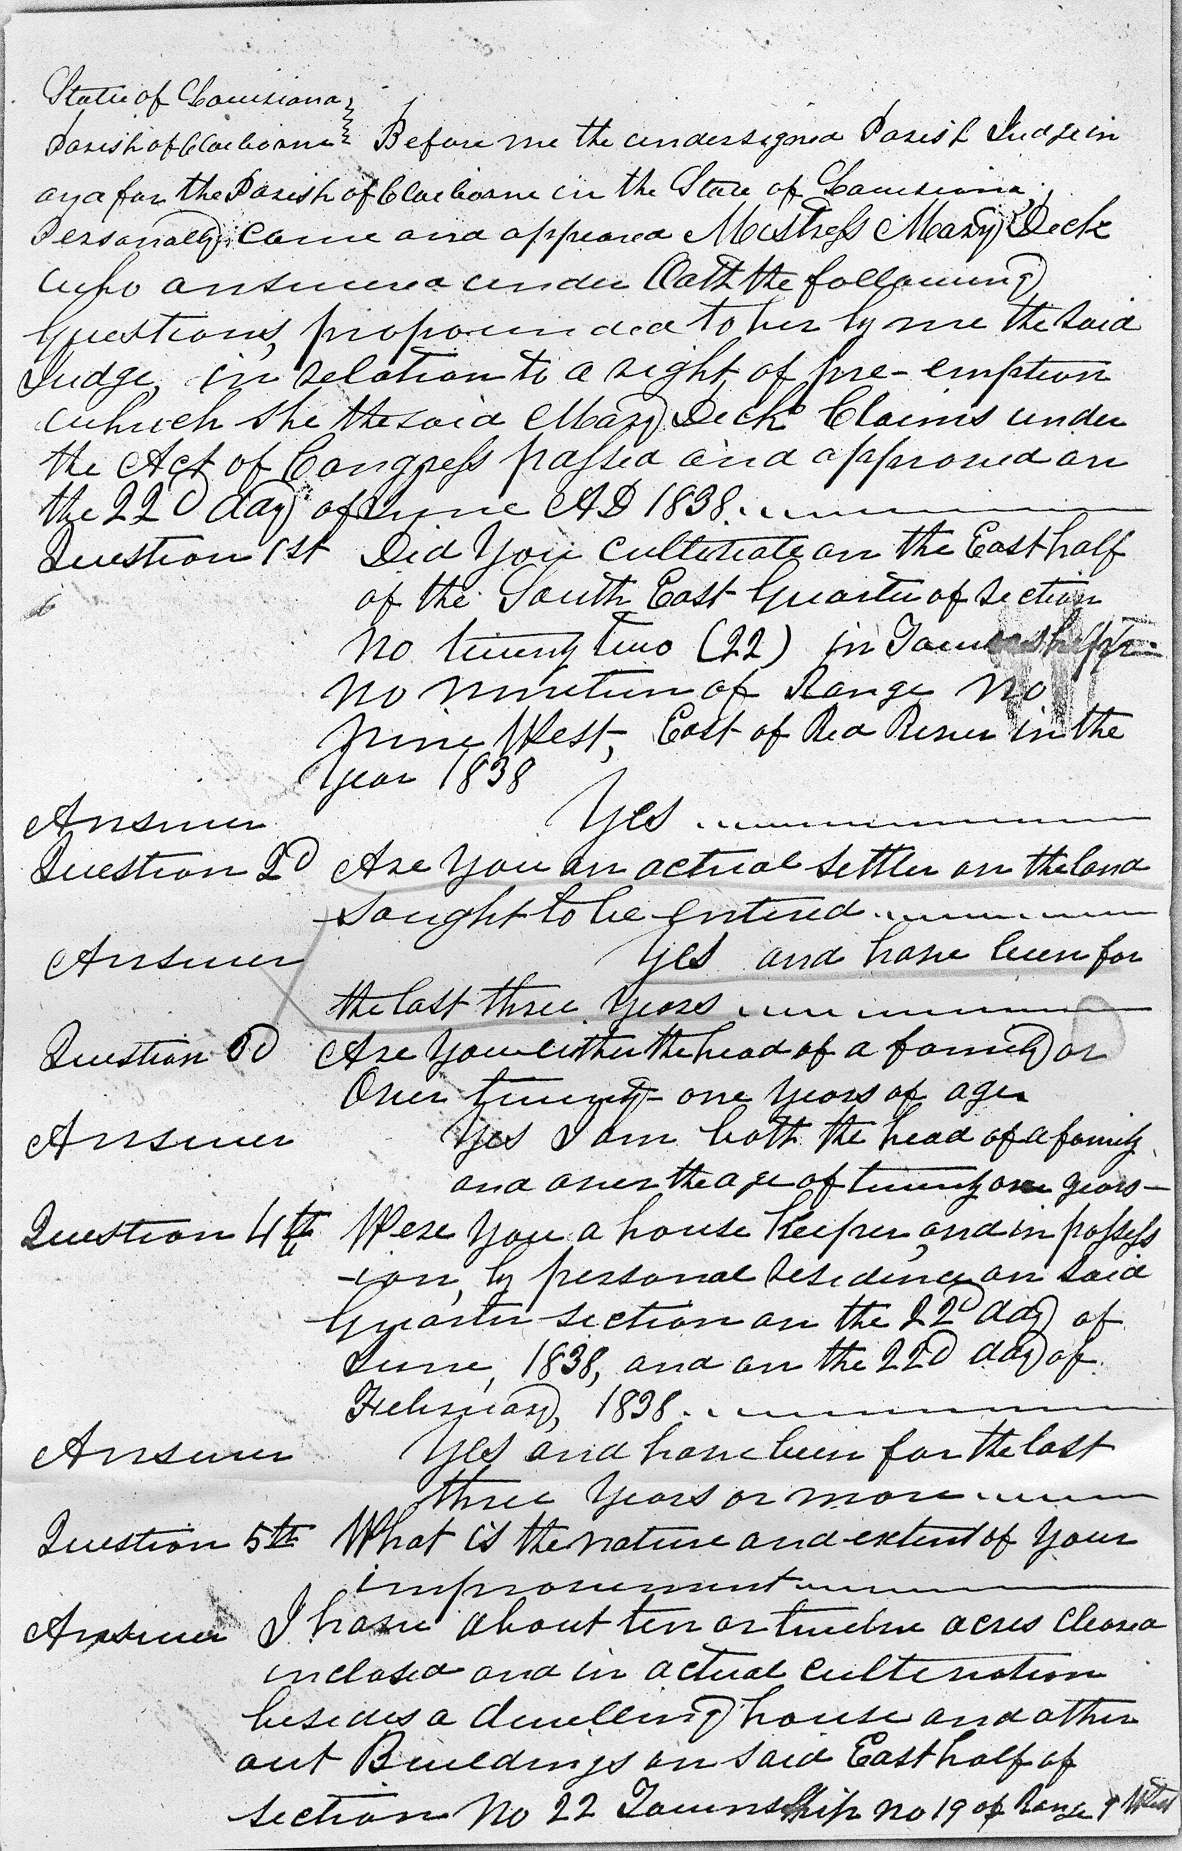 State of Louisiana
Parish of Claiborne Before me the undersigned Parish Judge in
and for the Parish of Claiborne in the State of Louisiana
Personally came and appeared Mistress Mary Deck
who answered under Oath the following
Questions, propounded to her by me the said
Judge, in relation to a right of pre-emption
which she the said Mary Deck Claims under
the Act of Congress passed and approved on
the 22d day of June AD 1838.
Question 1st Did You cultivate on the East half
of the South East Quarter of section
No twenty two (22) in Township
No nineteen of Range No
Nine West, East of Red River in the
Year 1838
Answer Yes
Question 2d Are You an actual settler on the land
sought to be entered
Answer Yes and have been for
the last three years
Question 3d Are You either the head of a family or
Over twenty-one years of age
Answer Yes I am both the head of a family
and over the age of twenty one years-
Question 4th Were You a house Keeper, and in possess
-ion, by personal residence on said
Quarter section on the 22d day of
June, 1838, and on the 22d day of
February, 1838
Answer Yes and have been for the last
three Years or more
Question 5th What is the nature and extent of your
improvement
Answer I have about ten or twelve acres cleared
inclosed and in actual cultivation
besides a dwelling house and other
out Buildings on said East half of
section No 22 Township no 19 of Range 9 West